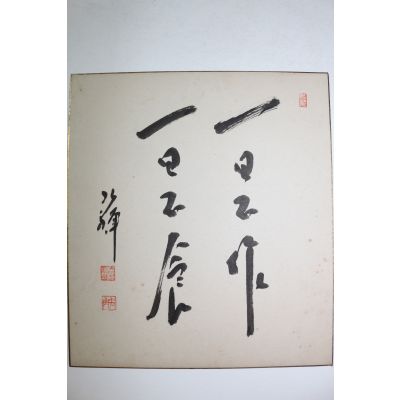 一日不作
一日不食